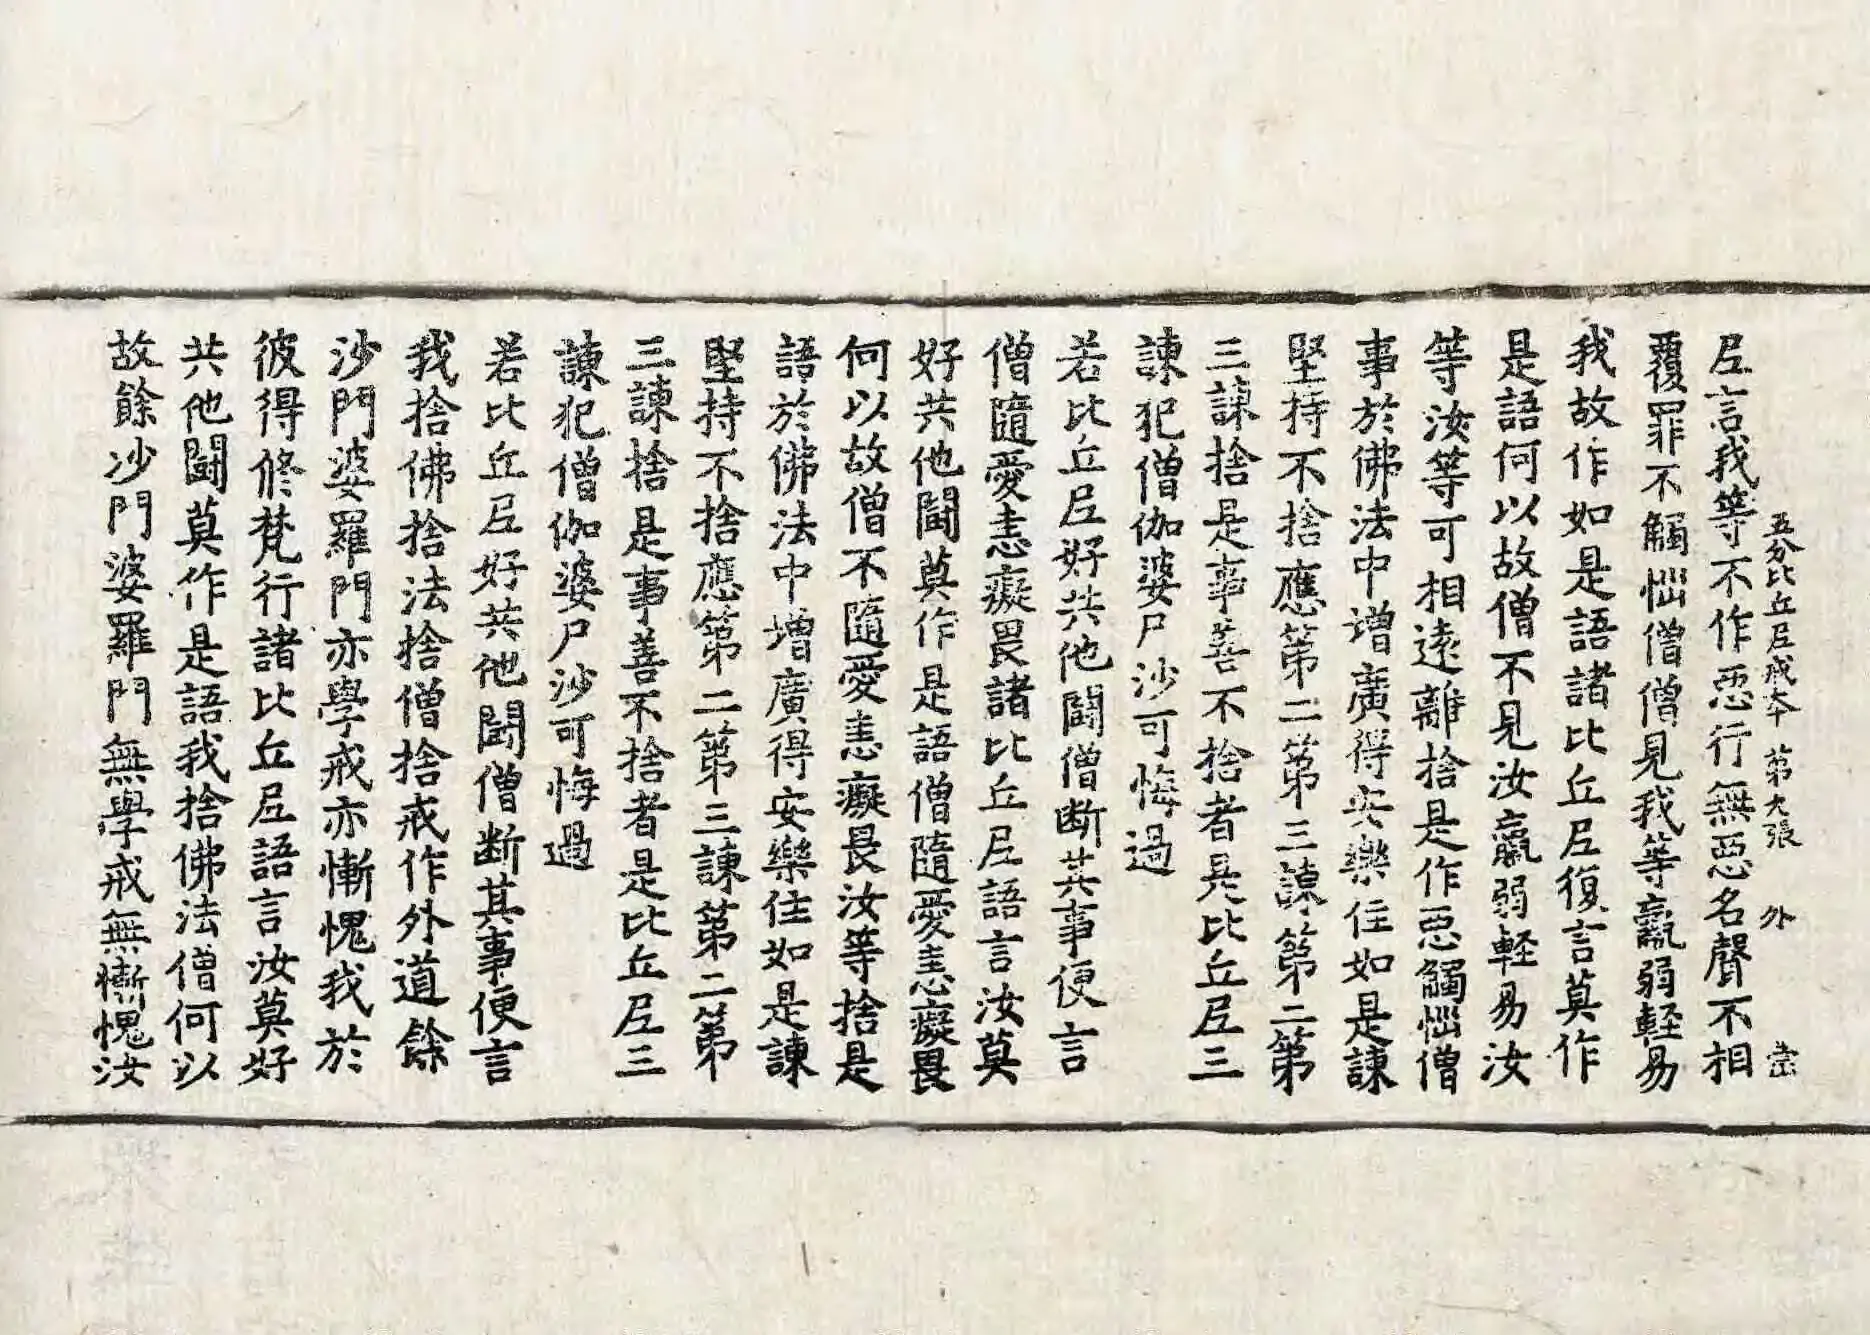 五分比丘尼戒本　第九張　外
尼言我等不作惡行無惡名聲不相
覆罪不觸惱僧僧見我等羸弱輕易
我故作如是語諸比丘尼復言莫作
是語何以故僧不見汝羸弱輕易汝
等汝等可相遠離捨是作惡觸惱僧
事於佛法中增廣得安樂住如是諫
堅持不捨應第二第三諫第二第
三諫捨是事善不捨者是比丘尼三
諫犯僧伽婆尸沙可悔過
若比丘尼好共他鬪僧断其事便言
僧隨愛恚癡畏諸比丘尼語言汝莫
好共他鬪莫作是語僧隨愛恚癡畏
何以故僧不隨愛恚癡畏汝等捨是
語於佛法中增廣得安樂住如是諫
堅持不捨應第二第三諫第二第
三諫捨是事善不捨者是比丘尼三
諫犯僧伽婆尸沙可悔過
若比丘尼好共他鬪僧断其事便言
我捨佛捨法捨僧捨戒作外道餘
沙門婆羅門亦學戒亦慚愧我於
彼得修梵行諸比丘尼語言汝莫好
共他鬪莫作是語我捨佛法僧何以
故餘沙門婆羅門無學戒無慚愧汝